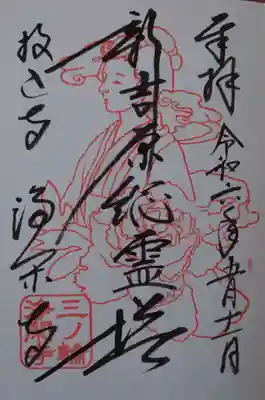 奉拝
令和六年五月十一日
新吉原総霊塔
投込寺
浄閑寺
三ノ輪
浄閑寺